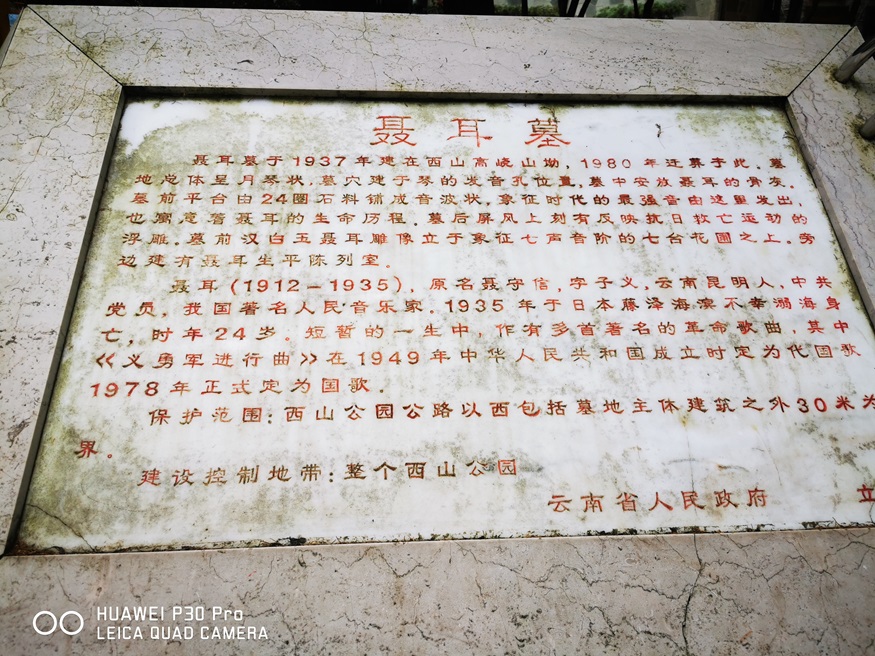 聂耳墓
聂耳墓于1937年建在西山高峣山坳，1980年迁葬于此。墓
地总体呈月琴状，墓穴建于琴的发音孔位置，墓中安放聂耳的骨灰。
墓前平台由24圈石料铺成音波状，象征时代的最强音由这里发出，
也寓意着聂耳的生命历程。墓后屏风上刻有反映抗日救亡运动的
浮雕。墓前汉白玉聂耳雕像立于象征七声音阶的七台花圃之上。旁
边建有聂耳生平陈列室。
聂耳(1912-1935)，原名聂守信，字子义，云南昆明人，中共
党员，我国著名人民音乐家。1935年于日本藤泽海滨不幸溺海身
亡，时年24岁。短暂的一生中，作有多首著名的革命歌曲，其中
《义勇军进行曲》在1949年中华人民共和国成立时定为代国歌
1978年正式定为国歌。
保护范围：西山公园公路以西包括墓地主体建筑之外30米为
界。
建设控制地带：整个西山公园
云南省人民政府 立
HUAWEI P30 Pro
LEICA QUAD CAMERA